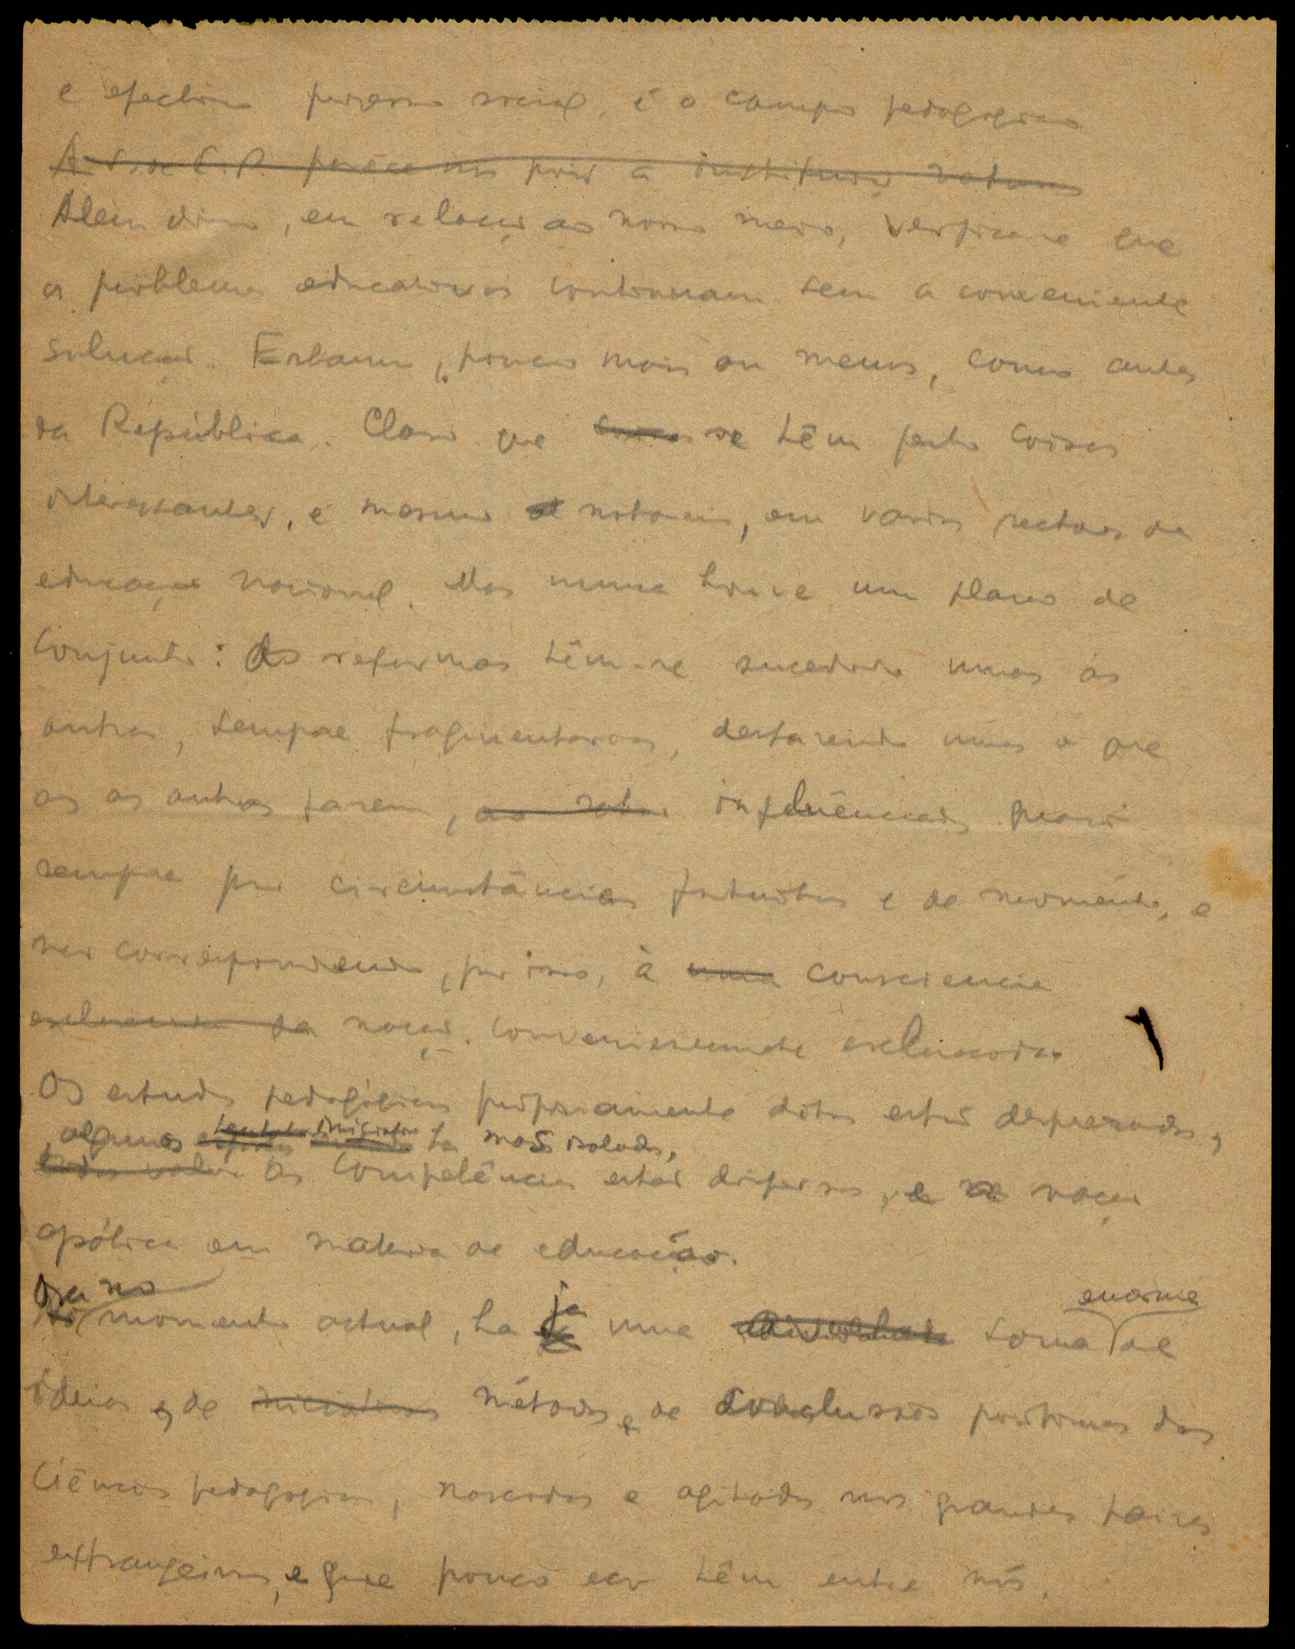 e efectivo progresso social, é o campo pedagogico
A S. de E. P. parece-nos pois a instituição
Alem disso, em relação ao nosso meio, verifica-se que
os problemas educativos continuam sem a conveniente
solução. Estamos, pouco mais ou menos, como antes
da República. Claro que se têm feito coisas
interessantes, e mesmo notaveis, em varios sectores da
educação nacional. Mas nunca houve um plano de
conjunto: As reformas têm-se sucedido umas ás
outras, sempre fragmentarias, desfazendo umas o que
as as outras fazem, influênciadas quasi
sempre por circunstâncias fortuitas e de momento, e
não correspondendo, por isso, à uma consciencia
esclarecida da nação convenientemente esclarecida.
Os estudos pedagógicos propriamente ditos estão desprezados,
algumas ha mas isoladas,
as competências estão dispersas, e a nação
apática em materia de educação.
Ora no
momento actual, ha já uma enorme soma de
ideias e, de métodos, e de conclusões positivas das
ciências pedagogicas, nascidas e agitadas nos grandes paises
extrangeiros, e que pouco eco têm entre nós.